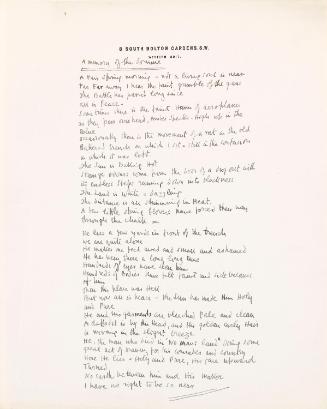 8 SOUTH BOLTON GARDENS. S.W.
A memory of the Somme
A Fair Spring morning – not a living soul is near
Far Far away I hear the faint grumble of the guns
The Battle has passed long since
All is Peace –
Sometimes there is the faint drone of aeroplanes
as they pass overhead, amber specks – high up in the
Blue
Occasionally there is the movement of a rat in the old
Battered trench on which I sit – still in the confusion
in which it was left
The sun is baking Hot
Strange odours come from the door of a dug out with
its endless steps running down into blackness
The land is white – dazzling
The distance is all shimmering in Heat
A few little Spring flowers have forced their way
through the chalk –
He lies a few yards in front of the trench
We are quite alone
He makes me feel awed and small and ashamed
He has been there a long long time
Hundreds of eyes have seen him
Hundreds of Bodies have felt faint and sick because
of Him
Then this place was Hell
But now all is Peace – The Sun has made Him Holy
and Pure
He and his garments are bleached Pale and clean
A daffodil is by the Head, and the golden curly Hair
is moving in the slight breeze
He, the man who died in "No man's land" doing some
great act of bravery for his comrades and country
Here He lies – Holy and Pure, His face upward
turned
No earth between him and His Maker
I have no right to be so near